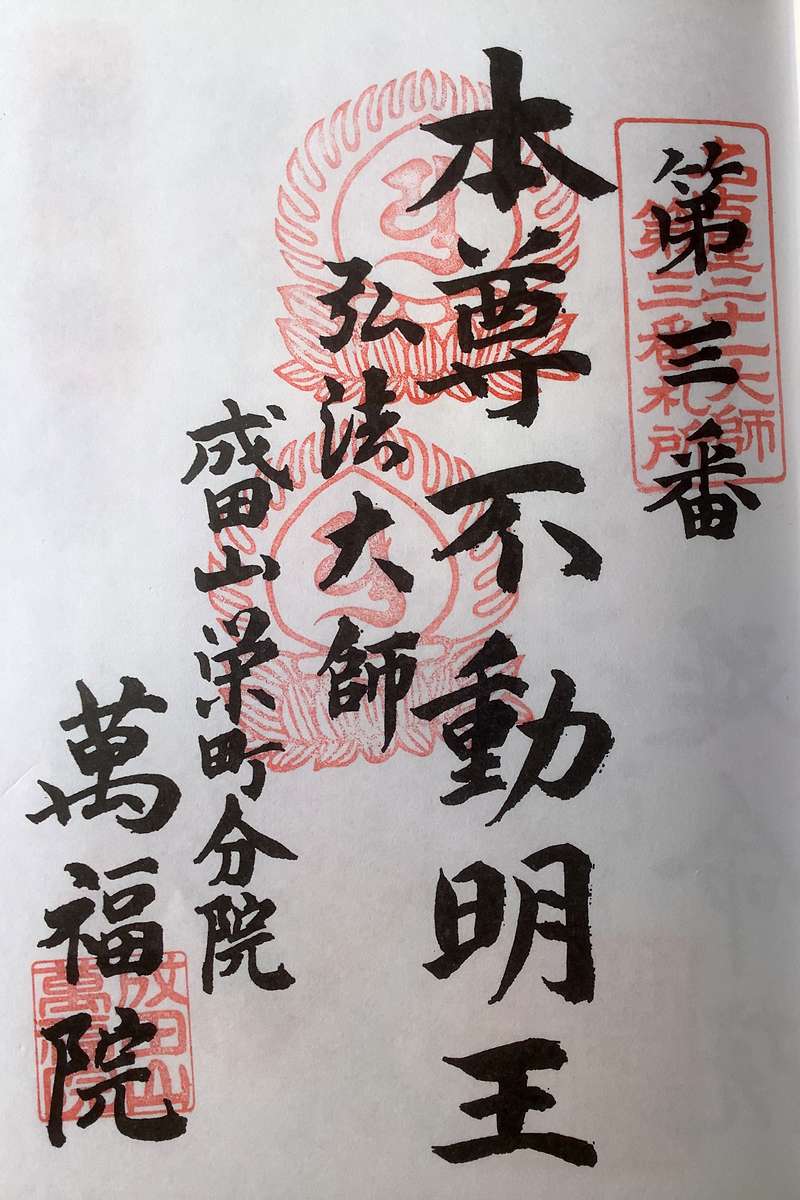 第三番
名古屋二十一大師
第三番札所
本尊不動明王
弘法大師
成田山栄町分院
萬福院
成田山
萬福院